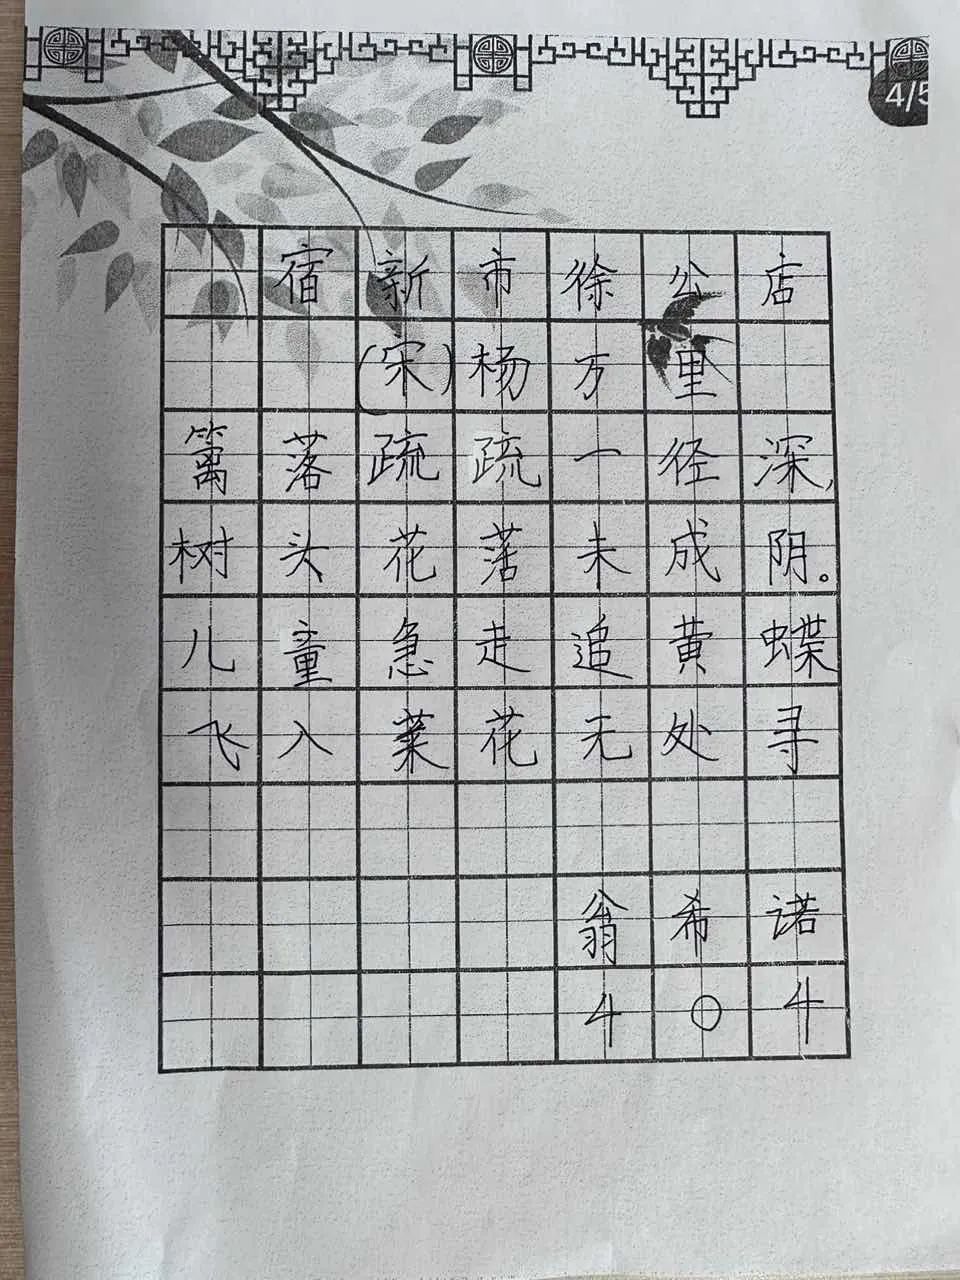 4/5
宿新市徐公店
(宋)杨万里
篱落疏疏一径深,
树头花落未成阴。
儿童急走追黄蝶
飞入菜花无处寻
翁希诺
404